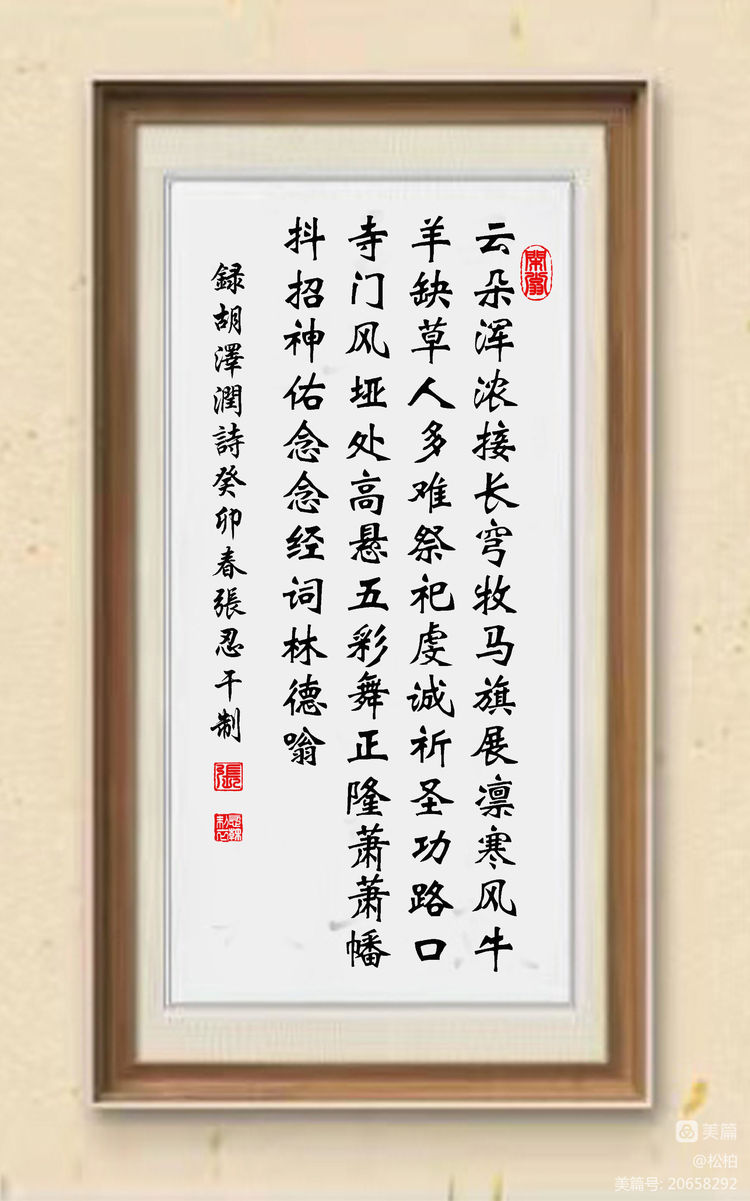 云朵浑浓接长穹牧马旗展凛寒风牛
羊缺草人多难祭祀虔诚祈圣功路口
寺门风垭处高悬五彩舞正隆萧萧幡
抖招神佑念念经词林德嗡
録胡澤潤詩癸卯春張忍干制
張
美篇
@松柏
美篇号: 20658292